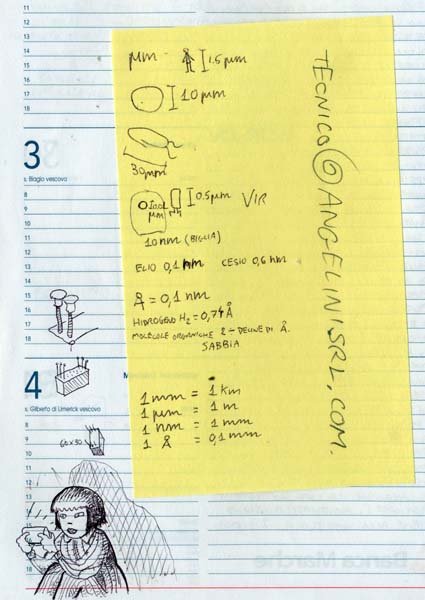 11
12
13
14
15
16
17
18
3
s. Biagio vescovo
8
9
10
11
12
13
14
15
16
17
18
4
s. Gilberto di Limerick vescovo
8
9
10
11
12
13
14
15
16
17
18
60x90
μm 1.5 μm
10 μm
30 μm
μm
0.5 μm VIR
10 nm (BIGLIA)
ELIO 0,1 nm CESIO 0,6 nm
Å = 0,1 nm
HIDROGENO H2 = 0,74 Å
MOLECOLE ORGANICHE 2 ÷ DECINE DI Å.
SABBIA
1 mm = 1 km
1 μm = 1 m
1 nm = 1 mm
1 Å = 0,1 mm
TECNICO@ANGELINISRL.COM.
Banca Marche